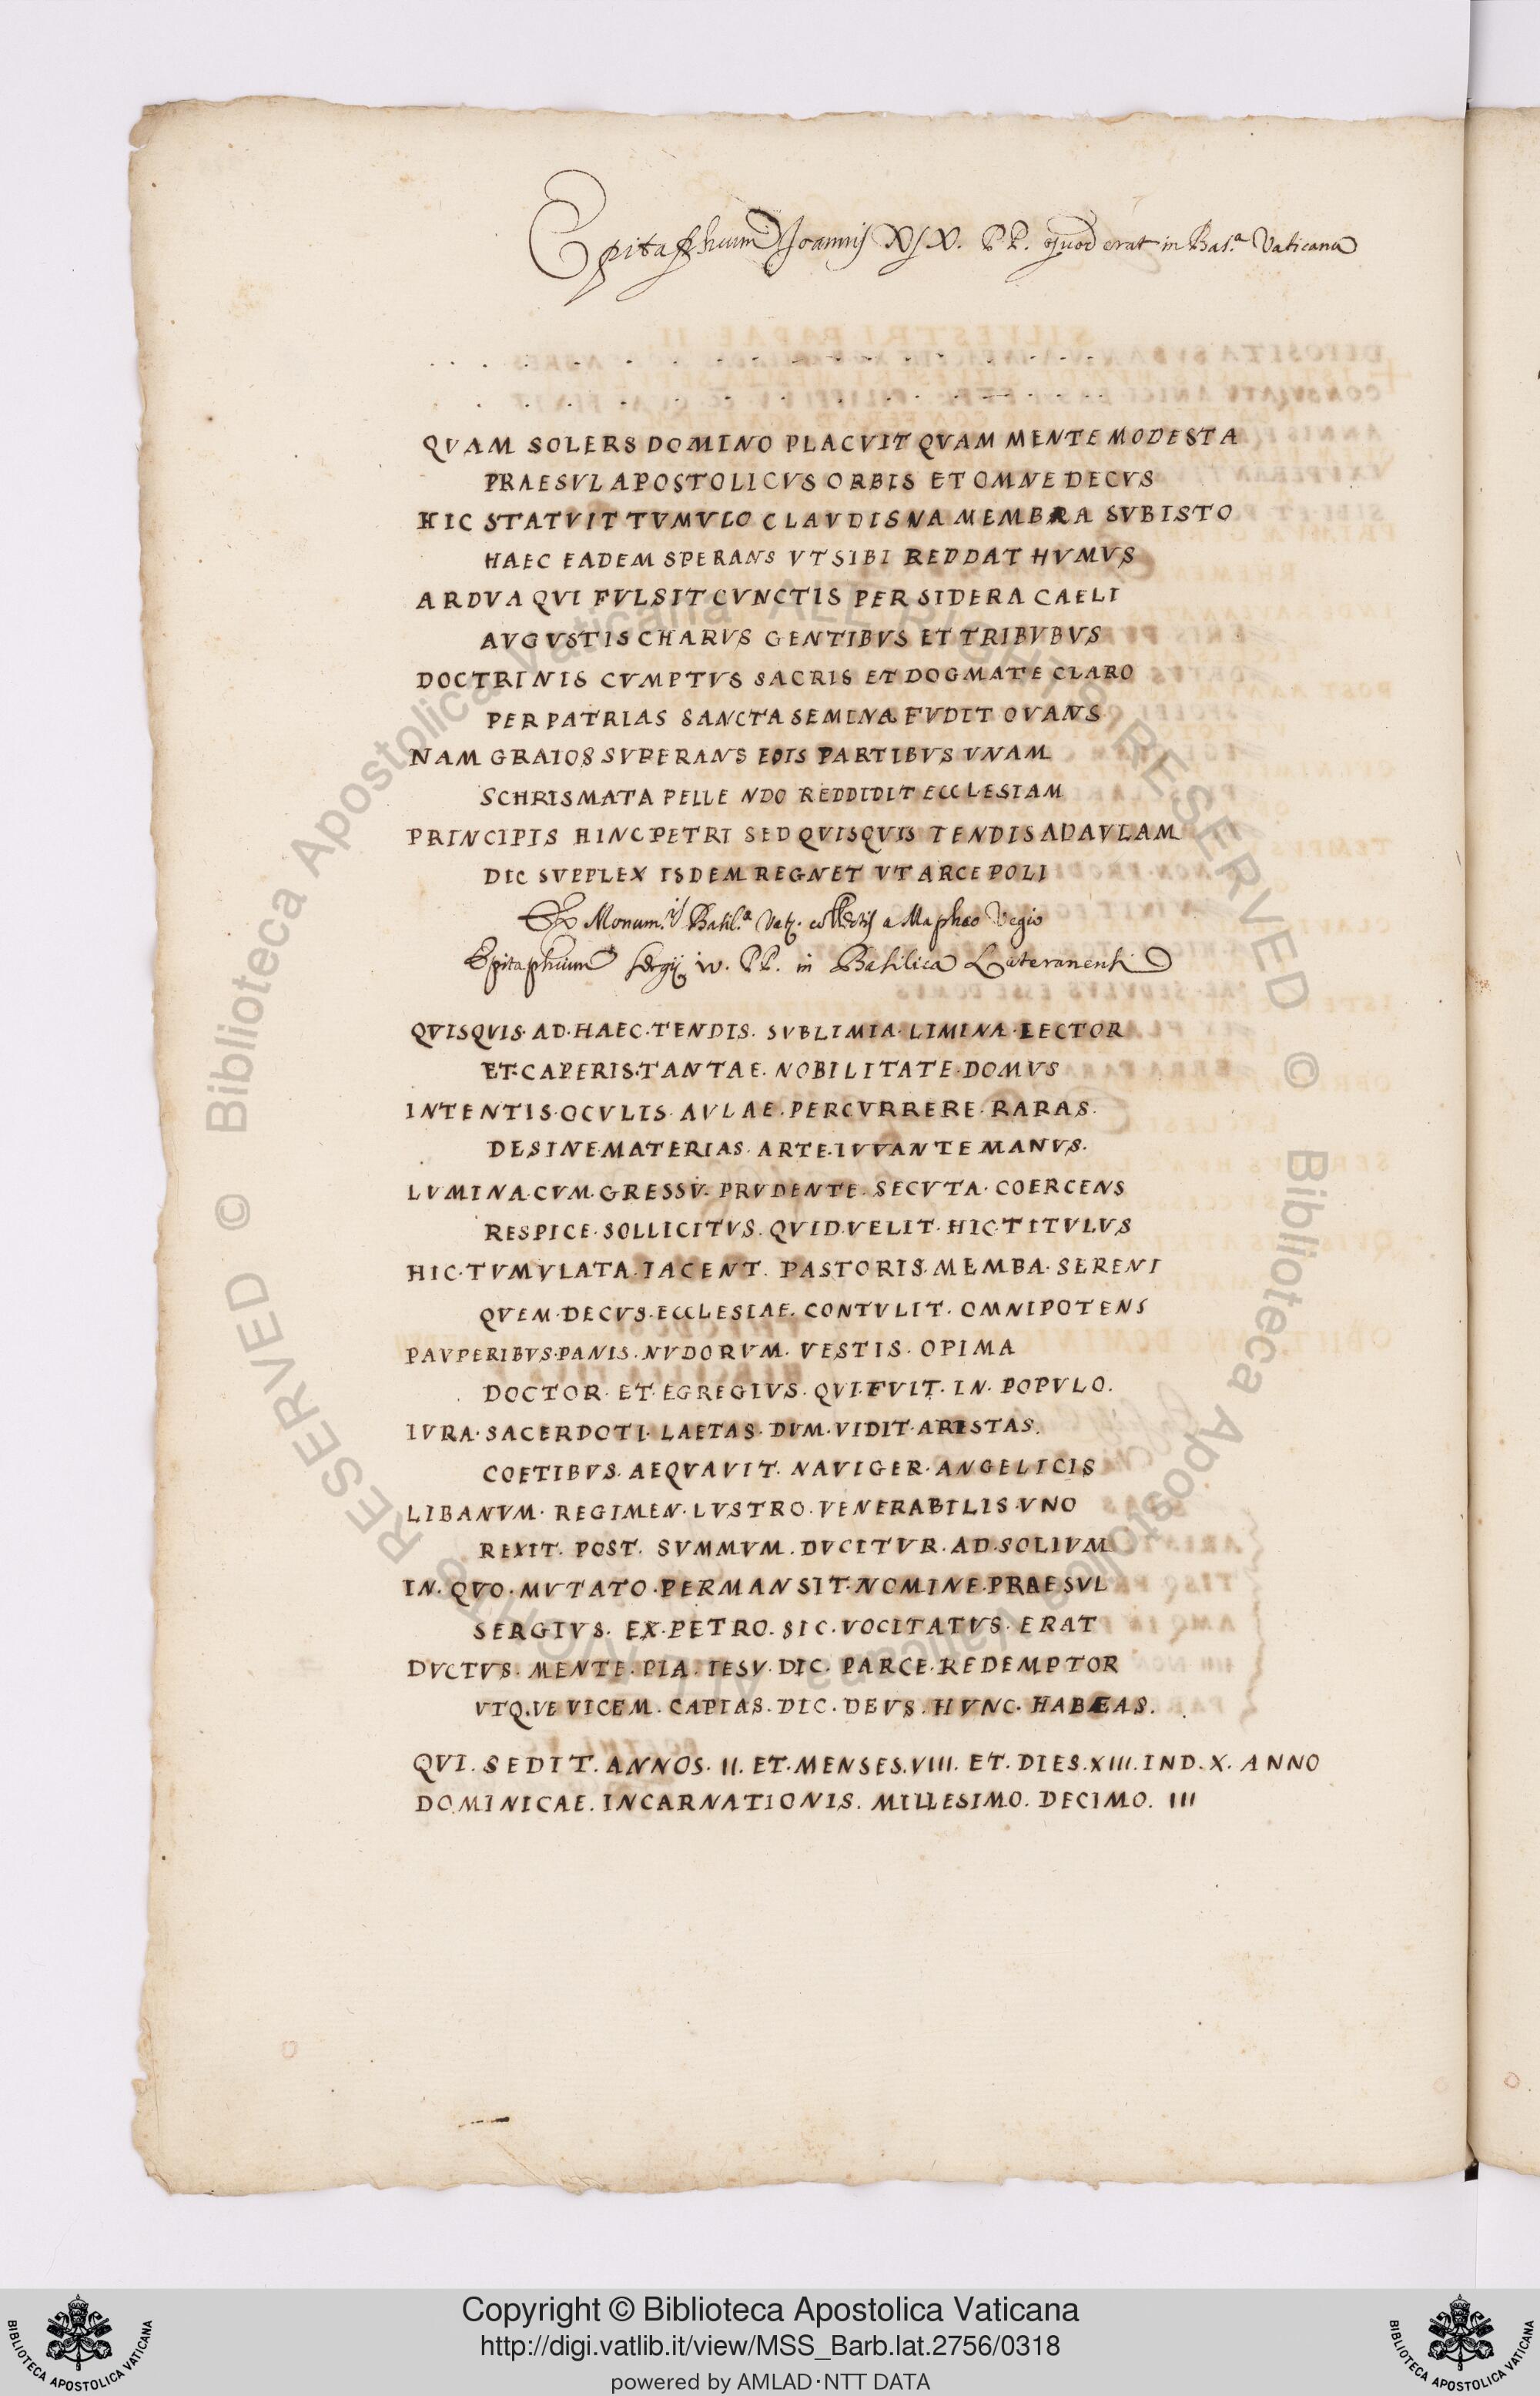 Epitaphium Joannis XIX. PP. quod erat in Bas.ca Vaticana
QVAM SOLERS DOMINO PLACVIT QVAM MENTE MODESTA
PRAESVL APOSTOLICVS ORBIS ET OMNE DECVS
HIC STATVIT TVMVLO CLAVDISNA MEMBRA SVBISTO
HAEC EADEM SPERANS VT SIBI REDDAT HVMVS
ARDVA QVI FVLSIT CVNCTIS PER SIDERA CAELI
AVGVSTIS CHARVS GENTIBVS ET TRIBVBVS
DOCTRINIS CVMPTVS SACRIS ET DOGMATE CLARO
PER PATRIAS SANCTA SEMINA FVDIT OVANS
NAM GRAIOS SVPERANS EOIS PARTIBVS VNAM
SCHRISMATA PELLENDO REDDIDIT ECCLESIAM
PRINCIPIS HINC PETRI SED QVISQVIS TENDIS AD AVLAM
DIC SVPPLEX ISDEM REGNET VT ARCE POLI
Ex Monum.is Basil.a Vat. collectis a Maphaeo Vegio
Epitaphium Sergij iv. PP. in Basilica Lateranensi
QVISQVIS·AD·HAEC·TENDIS·SVBLIMIA·LIMINA·LECTOR
ET·CAPERIS·TANTAE·NOBILITATE·DOMVS
INTENTIS·OCVLIS·AVLAE·PERCVRRERE·RARAS·
DESINE·MATERIAS·ARTE·IVVANTE MANVS·
LVMINA·CVM·GRESSV·PRVDENTE·SECVTA·COERCENS
RESPICE·SOLLICITVS·QVID·VELIT·HIC·TITVLVS
HIC·TVMVLATA·IACENT·PASTORIS·MEMBA·SERENI
QVEM·DECVS·ECCLESIAE·CONTVLIT·OMNIPOTENS
PAVPERIBVS·PANIS·NVDORVM·VESTIS·OPIMA
DOCTOR·ET·EGREGIVS·QVI·FVIT·IN·POPVLO·
IVRA·SACERDOTI·LAETAS·DVM·VIDIT·ARISTAS·
COETIBVS·AEQVAVIT·NAVIGER·ANGELICIS
LIBANVM·REGIMEN·LVSTRO·VENERABILIS·VNO
REXIT·POST·SVMMVM·DVCITVR·AD·SOLIVM
IN·QVO·MVTATO·PERMANSIT·NOMINE·PRAESVL
SERGIVS·EX·PETRO·SIC·VOCITATVS·ERAT
DVCTVS·MENTE·PIA·IESV·DIC·PARCE·REDEMPTOR
VTQ·VE VICEM·CAPIAS·DIC·DEVS·HVNC·HABEAS·
QVI·SEDIT·ANNOS·II·ET·MENSES·VIII·ET·DIES·XIII·IND·X·ANNO
DOMINICAE·INCARNATIONIS·MILLESIMO·DECIMO·III
© Biblioteca Apostolica Vaticana ALL RIGHTS RESERVED © Biblioteca Apostolica Vaticana ALL RIGHTS RESERVED
Copyright © Biblioteca Apostolica Vaticana
http://digi.vatlib.it/view/MSS_Barb.lat.2756/0318
powered by AMLAD·NTT DATA
BIBLIOTECA APOSTOLICA VATICANA
BIBLIOTECA APOSTOLICA VATICANA